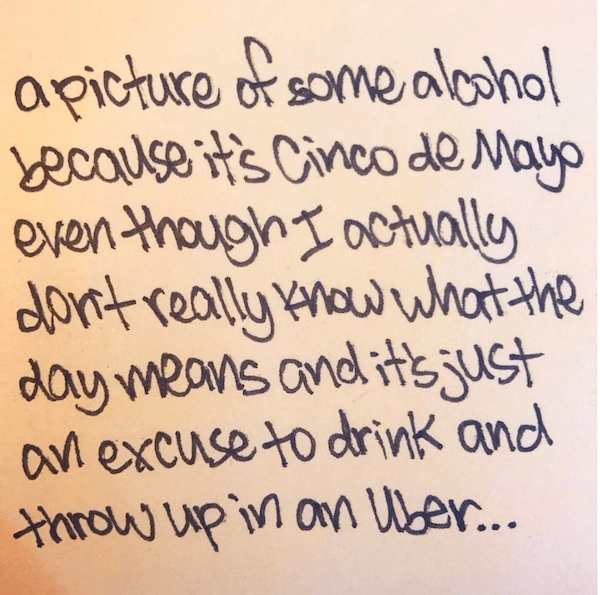 a picture of some alcohol
because it's Cinco de Mayo
even though I actually
don't really know what the
day means and it's just
an excuse to drink and
throw up in an Uber...